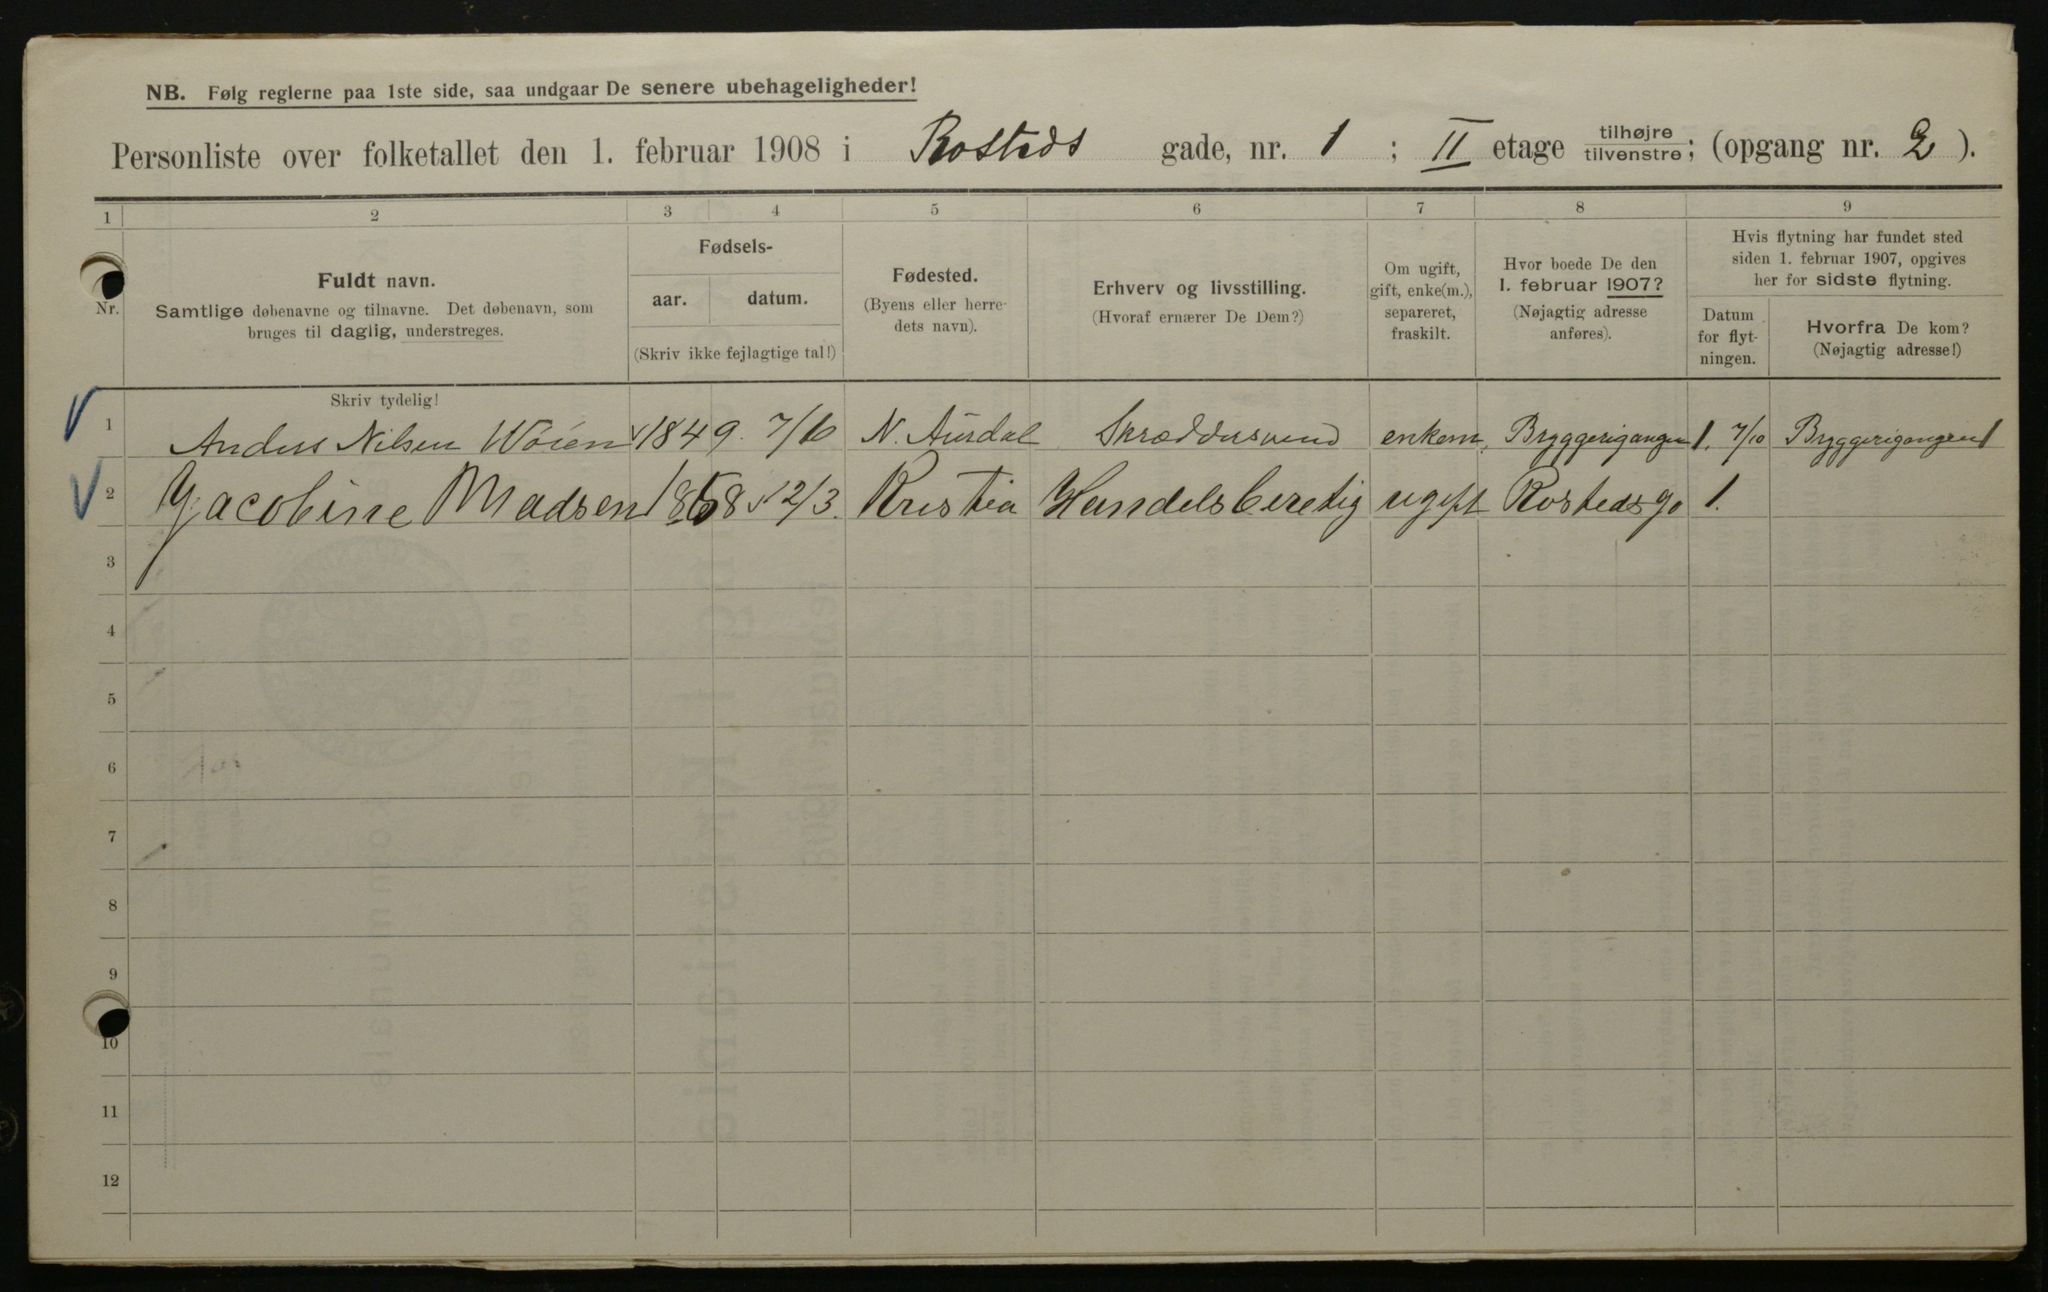 NB. Følg reglerne paa 1ste side, saa undgaar De senere ubehageligheder!
Personliste over folketallet den 1. februar 1908 i Rosteds gade, nr. 1 ; II etage tilhøjre tilvenstre; (opgang nr. 2 ).
1 2 3 4 5 6 7 8 9
Nr.
Fuldt navn.
Samtlige døbenavne og tilnavne. Det døbenavn, som
bruges til daglig, understreges.
Skriv tydelig!
Fødsels-
aar. datum.
(Skriv ikke fejlagtige tal!)
Fødested.
(Byens eller herre-
dets navn).
Erhverv og livsstilling.
(Hvoraf ernærer De Dem?)
Om ugift,
gift, enke(m.),
separeret,
fraskilt.
Hvor boede De den
1. februar 1907?
(Nøjagtig adresse
anføres).
Hvis flytning har fundet sted
siden 1. februar 1907, opgives
her for sidste flytning.
Datum
for flyt-
ningen.
Hvorfra De kom?
(Nøjagtig adresse!)
1 Anders Nilsen Wöien 1849 7/6 N. Aurdal Skræddersvend enkem. Bryggerigangen 1. 7/10 Bryggerigangen 1
2 Jacobine Madsen 1868 12/3. Kristia Handelsberetig ugift Rostedsg 1.
3
4
5
6
7
8
9
10
11
12